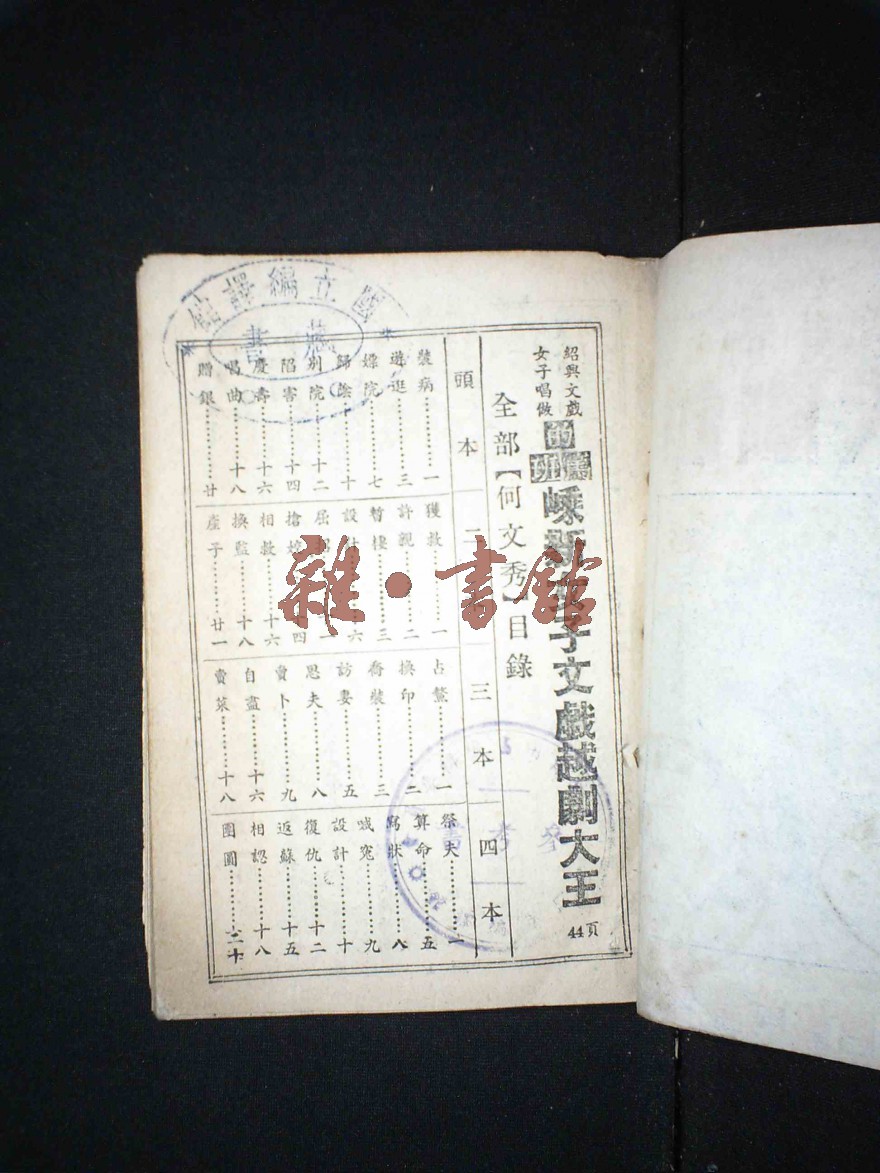 國立編譯館
藏書
紹興文戲
女子唱做
的篤班
嵊新女子文戲越劇大王
44頁
全部【何文秀】目錄
頭本
裝病……一
遊逛……三
嫖院……七
歸陰……十
別院……十二
陷害……十四
慶壽……十六
唱曲……十八
贈銀……廿
二本
獲救……一
許親……二
暫棲……三
設計……六
相救……十六
換監……十八
產子……廿一
三本
占鰲……一
換印……二
喬裝……三
訪妻……五
思夫……八
賣卜……九
自盡……十六
賣菜……十八
四本
祭夫……一
算命……五
寫狀……八
喊冤……九
設計……十
復仇……十二
返蘇……十五
相認……十八
團圓……二十
雜·書館